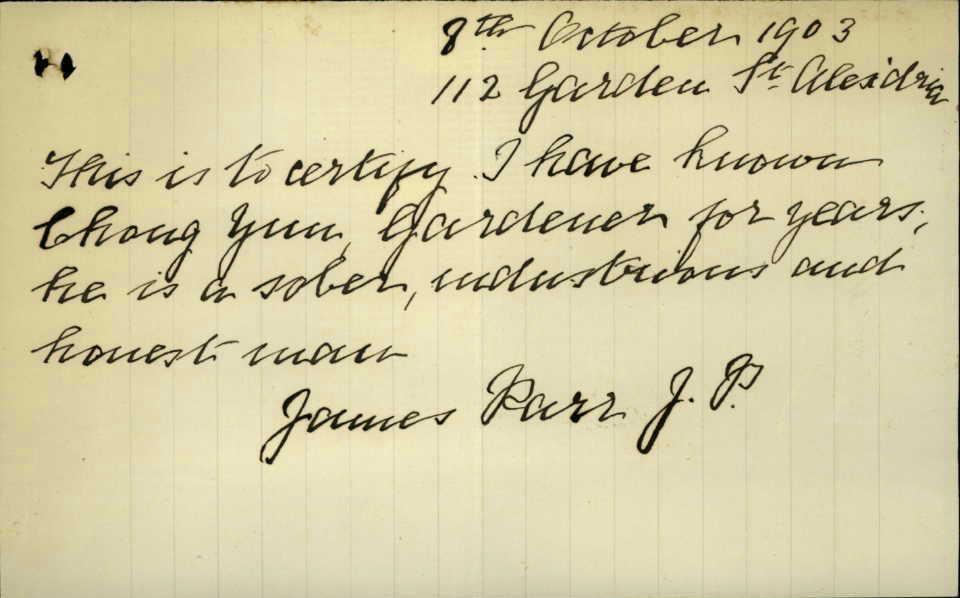 8th October 1903
112 Garden St Alexdria
This is to certify I have known
Chong Yun, Gardener for years,
he is a sober, industrious and
honest man
James Parr J. P.